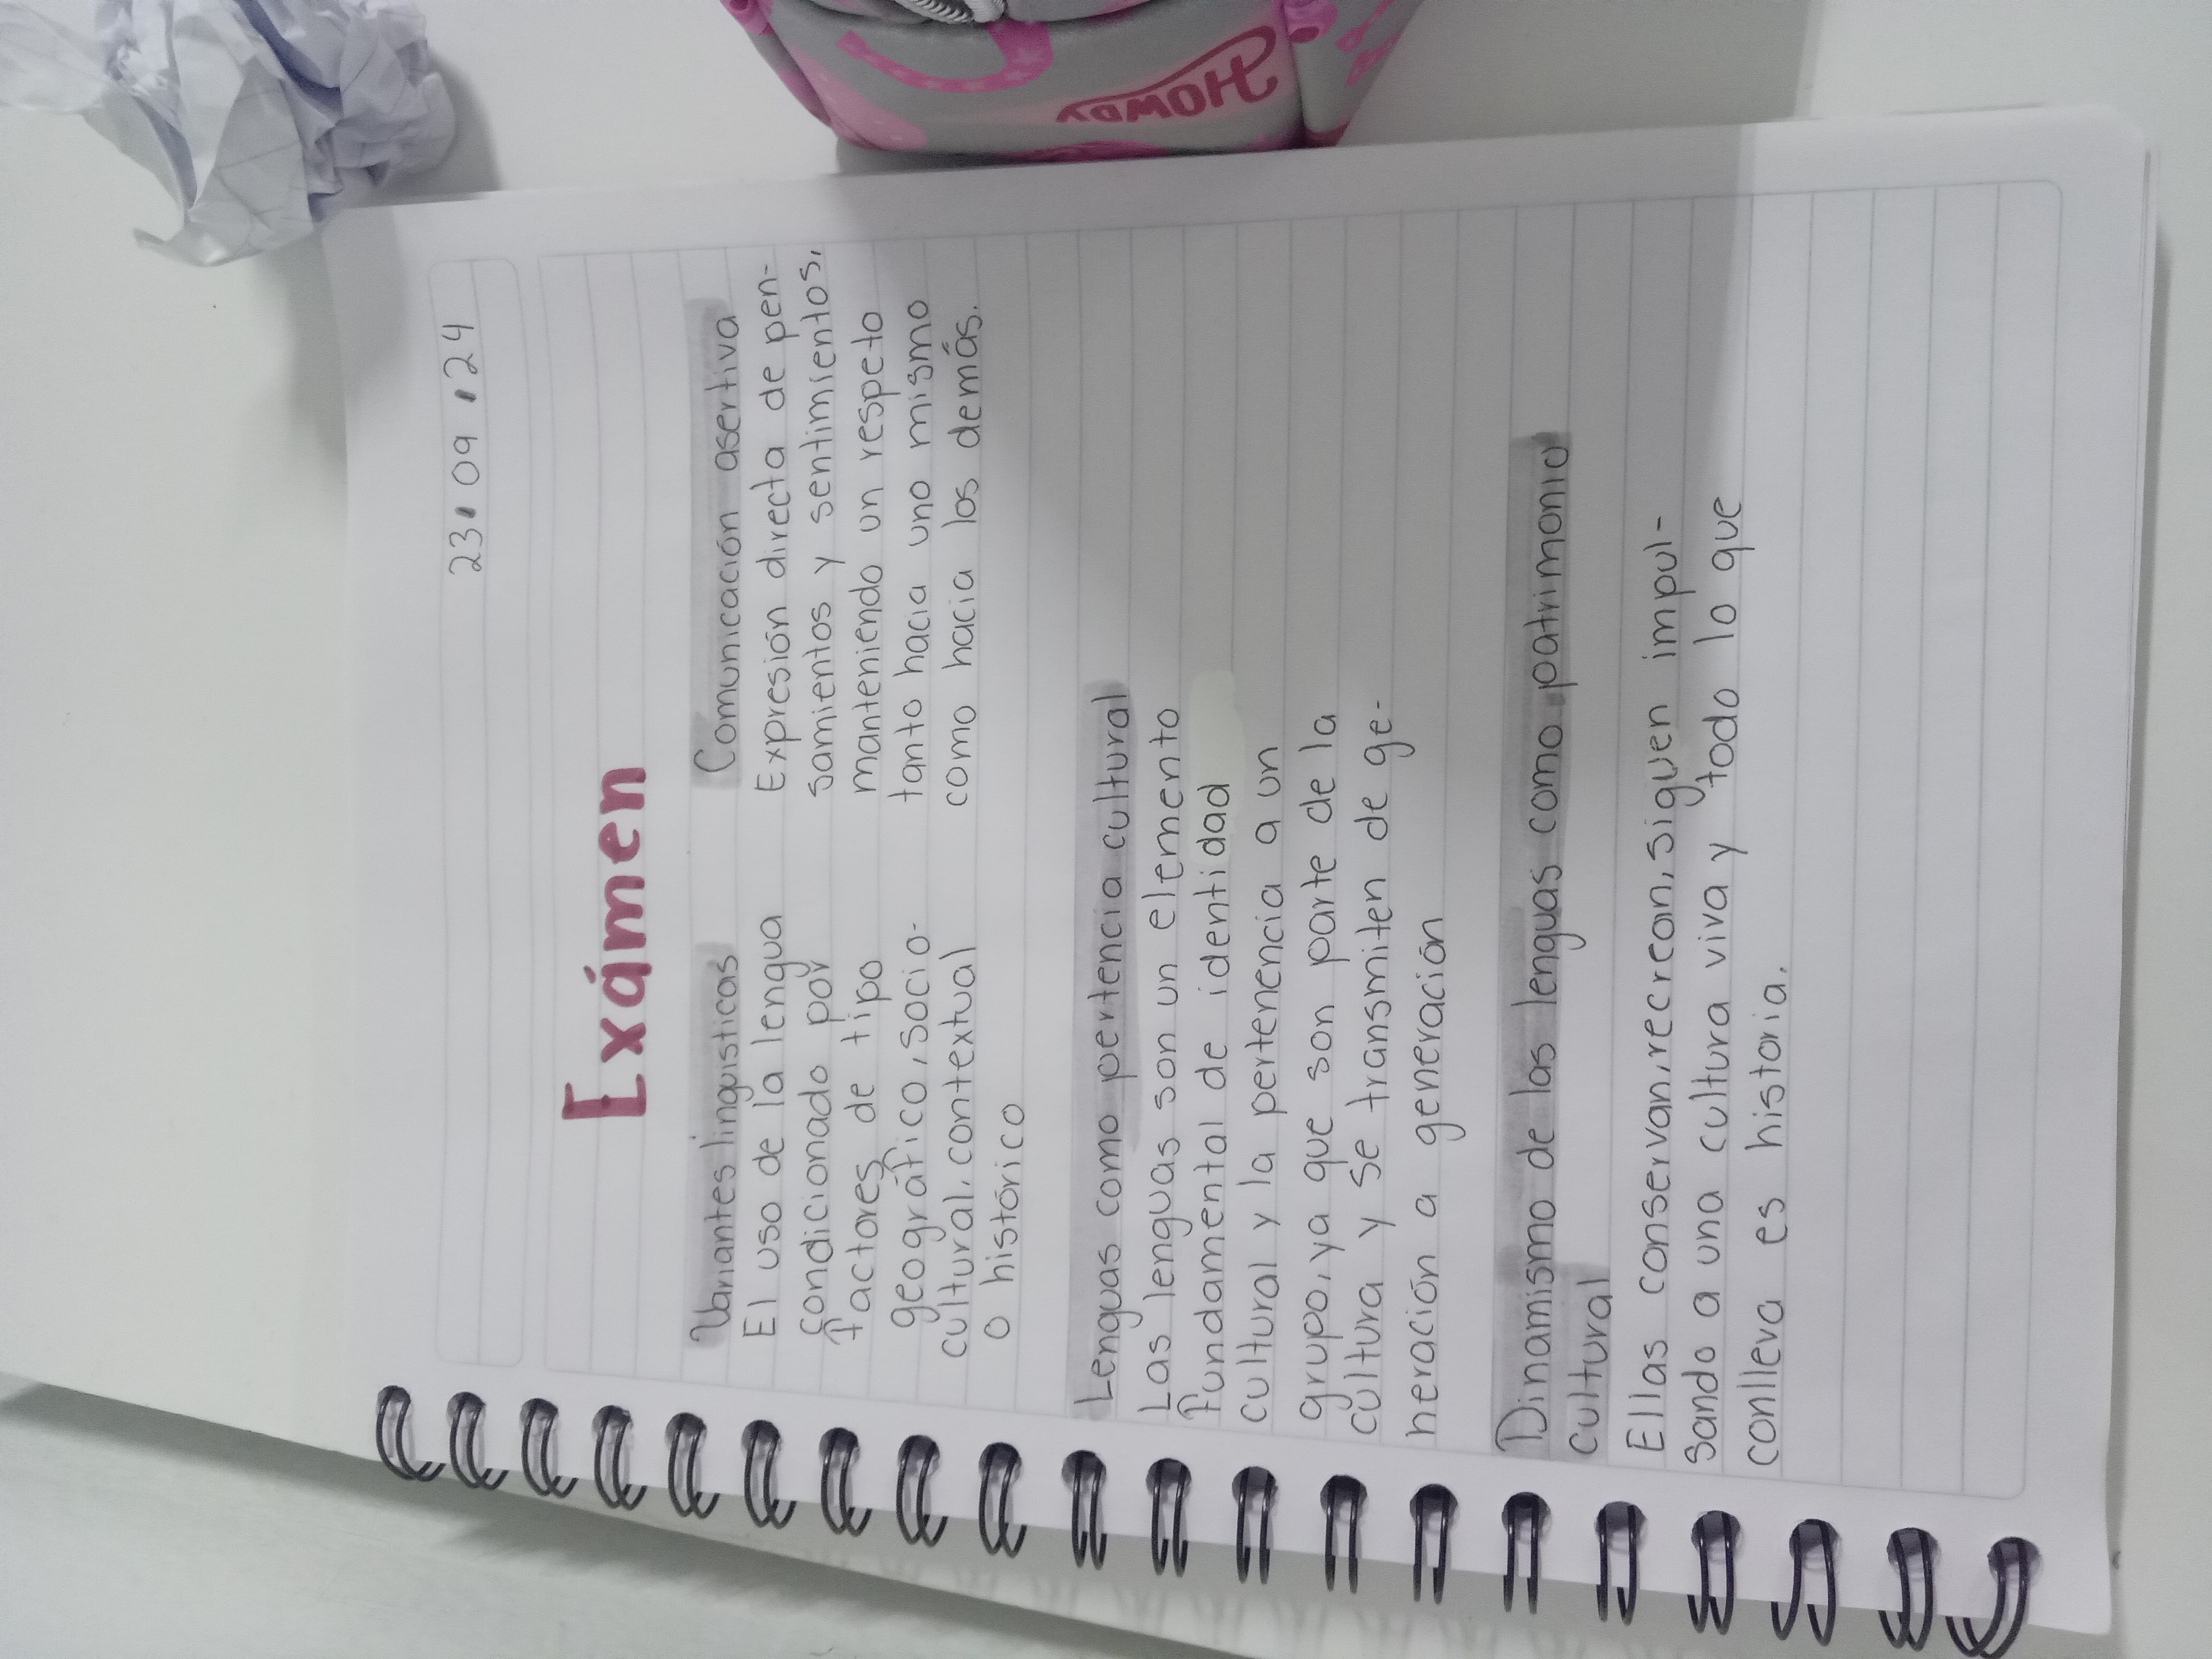 23 09 24
Exámen
Variantes linguisticas
El uso de la lengua
condicionado por
factores de tipo
geográfico, socio-
cultural, contextual
o histórico
Comunicación asertiva
Expresión directa de pen-
samientos y sentimientos,
manteniendo un respeto
tanto hacia uno mismo
como hacia los demás.
Lenguas como pertencia cultural
Las lenguas son un elemento
fundamental de identidad
cultural y la pertenencia a un
grupo, ya que son parte de la
cultura y se transmiten de ge-
neración a generación
Dinamismo de las lenguas como patrimonio
cultural
Ellas conservan, recrean, siguen impul-
sando a una cultura viva y todo lo que
conlleva es historia.
HOWDY